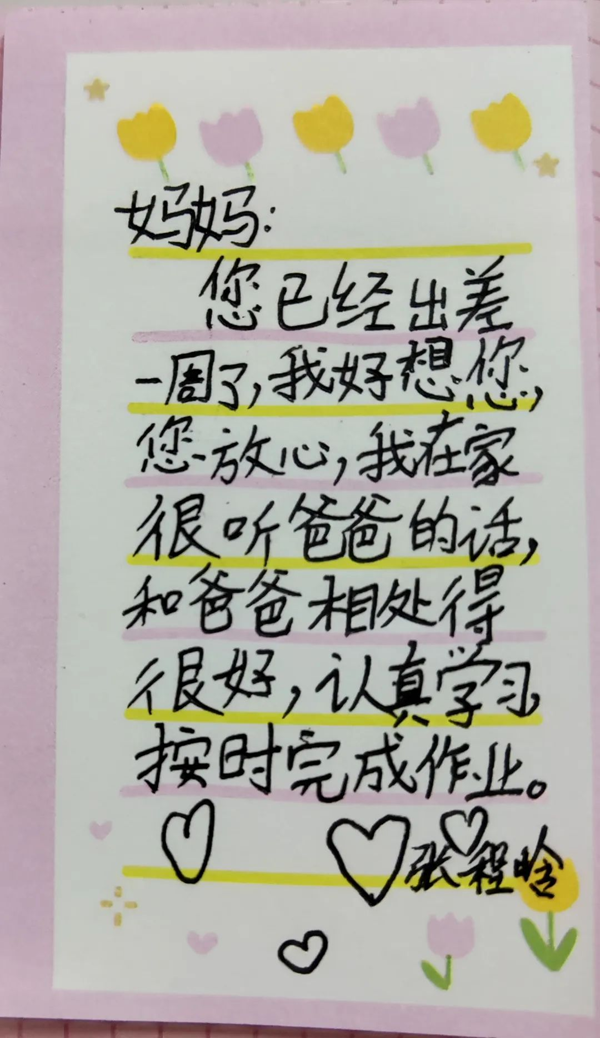 妈妈:
您已经出差
一周了,我好想您,
您放心,我在家
很听爸爸的话,
和爸爸相处得
很好,认真学习,
按时完成作业。
张程晗